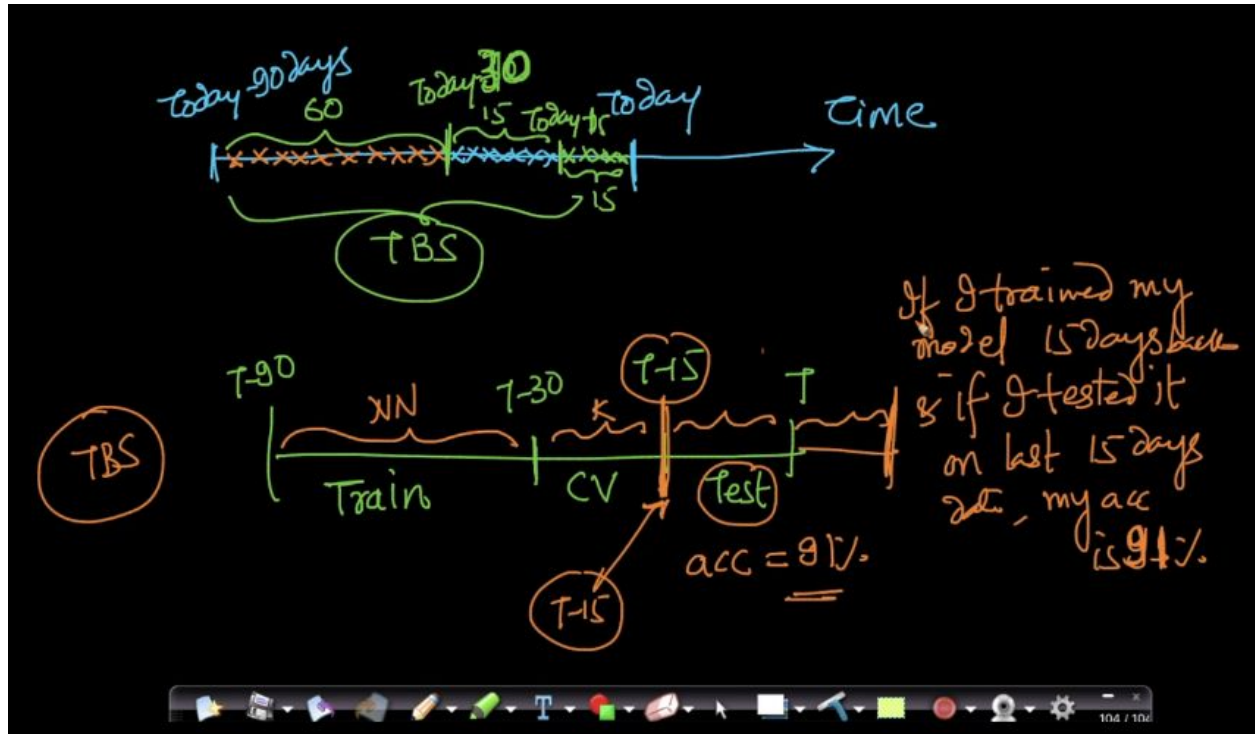 Today-90days
Today-30
Today-15
Today
Time
60
15
15
TBS
TBS
T-90
T-30
T-15
T
NN
K
Train
CV
Test
T-15
acc = 91%
If I trained my
model 15 days back
& if I tested it
on last 15 days
data, my acc
is 91%
104 / 104